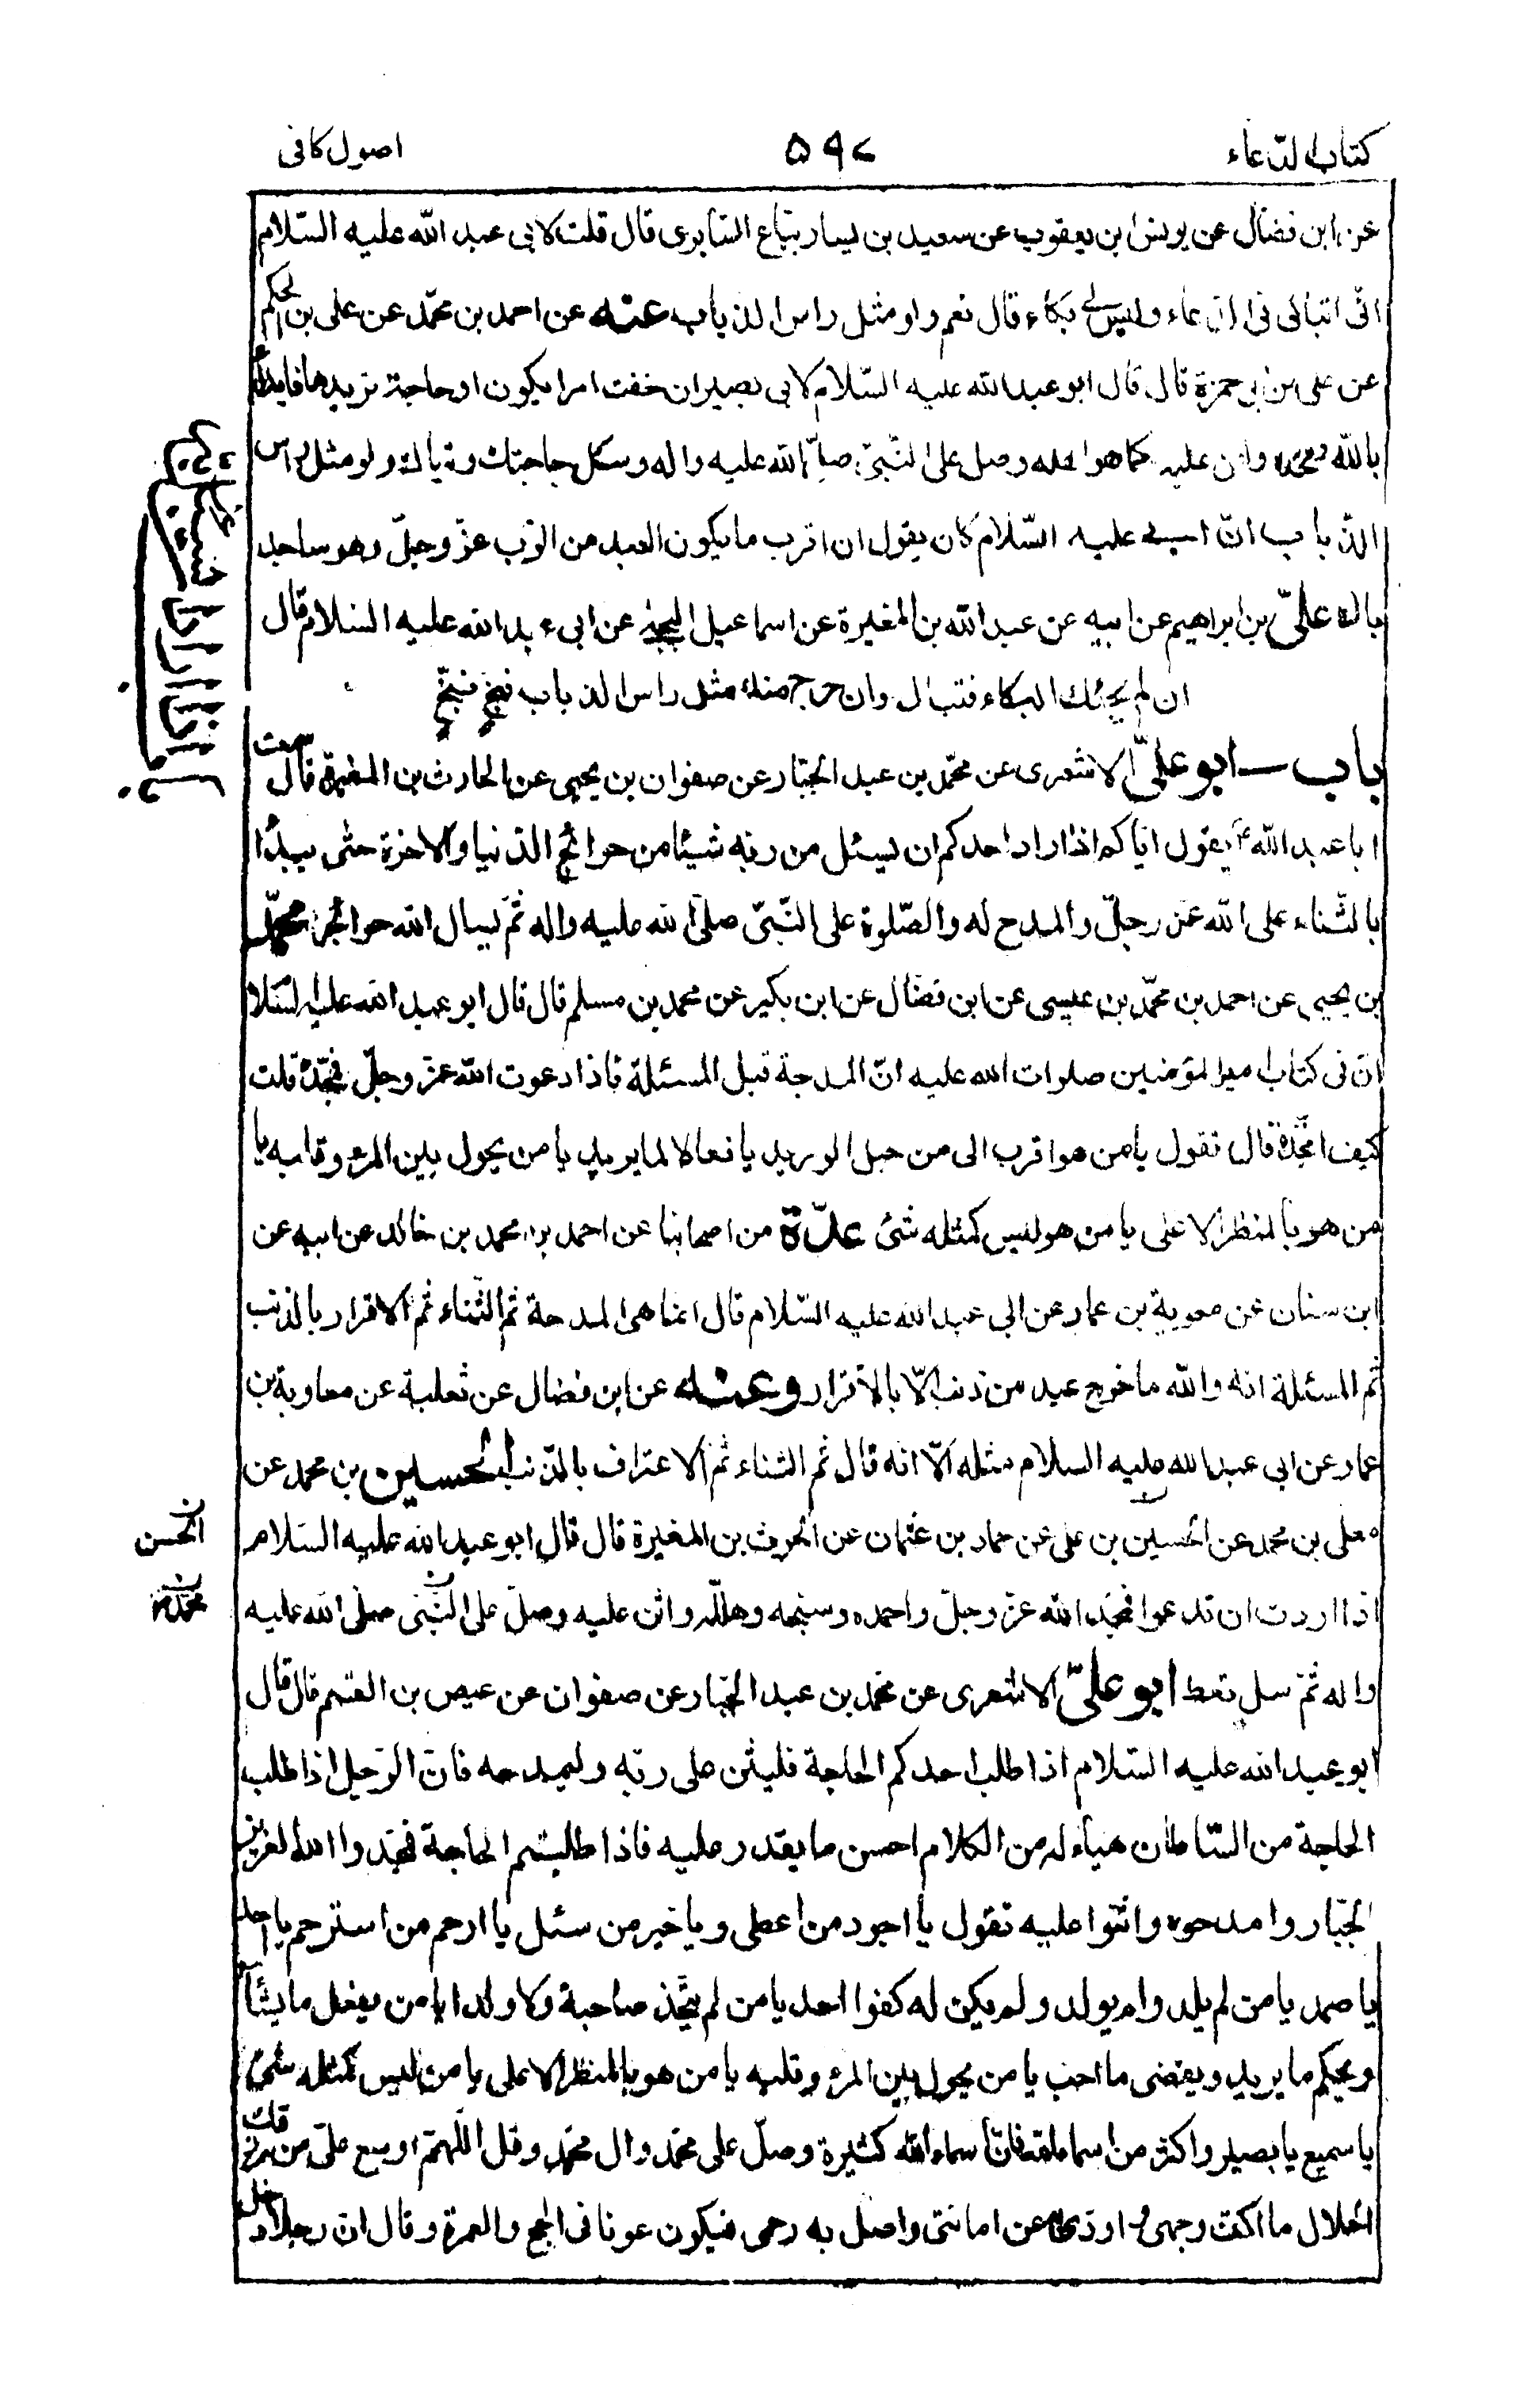 كتاب الدّعاء
۵۹۷
اصول كافى
عن ابن فضال عن يونس ابن يعقوب عن سعيد بن يسار بتياع السّابرى قال قلت لابى عبد الله عليه السّلام
انّى اتباكى فى الدّعاء وليس لى بكاء قال نعم ولو مثل راس الذباب عنه عن احمد بن محمّد عن على بن الحكم
عن على بن ابى حمزة قال قال ابو عبد الله عليه السّلام لابى بصير ان خفت امرا يكون او حاجة تريدها فابدأ
بالله ومجّده واثن عليه كما هو اهله وصل على النّبىّ صلّى الله عليه واله وسل حاجتك وتباك ولو مثل راس
الذباب انّ ابى عليه السّلام كان يقول ان اقرب ما يكون العبد من الرّب عزّ وجلّ وهو ساجد
باك علىّ بن ابراهيم عن ابيه عن عبد الله بن المغيرة عن اسماعيل البجلى عن ابى عبد الله عليه السّلام قال
ان لم يجئك البكاء فتباك وان خرج منك مثل راس الذباب فبخ فبخ
باب ــ ابو علىّ الاشعرى عن محمّد بن عبد الجبّار عن صفوان بن يحيى عن الحارث بن المغيرة قال سمعت
ابا عبد الله ع يقول ايّاكم اذا اراد احدكم ان يسئل من ربّه شيئا من حوائج الدّنيا والاخرة حتّى يبدأ
بالثّناء على الله عزّ وجلّ والمدح له والصّلوة على النّبىّ صلّى الله عليه واله ثمّ يسال الله حوائجه محمّد
بن يحيى عن احمد بن محمّد بن عيسى عن ابن فضّال عن ابن بكير عن محمد بن مسلم قال قال ابو عبد الله عليه السّلا
انّ فى كتاب امير المؤمنين صلوات الله عليه انّ المدحة قبل المسئلة فاذا دعوت الله عزّ وجلّ فمجّده قلت
كيف امجّده قال تقول يا من هو اقرب الى من حبل الوريد يا فعالا لما يريد يا من يحول بين المرء وقلبه يا
من هو بالمنظر الاعلى يا من هو ليس كمثله شئ عدّة من اصحابنا عن احمد بن محمد بن خالد عن ابيه عن
ابن سنان عن معوية بن عمار عن ابى عبد الله عليه السّلام قال انما هى المدحة ثم الثّناء ثم الاقرار بالذنب
ثم المسئلة انّه والله ما خرج عبد من ذنب الّا بالاقرار وعنه عن ابن فضال عن ثعلبة عن معاوية بن
عمار عن ابى عبد الله عليه السلام مثله الّا انه قال ثم الثناء ثم الاعتراف بالذّنب الحسين بن محمد عن
معلى بن محمد عن الحسين بن على عن حماد بن عثمان عن الحرث بن المغيرة قال قال ابو عبد الله عليه السّلام
اذا اردت ان تدعوا فمجّد الله عزّ وجلّ واحمده وسبّحه وهلّله واثن عليه وصلّ على النّبى صلّى الله عليه
واله ثمّ سل تعط ابو علىّ الاشعرى عن محمد بن عبد الجبّار عن صفوان عن عيص بن القسم قال قال
ابو عبد الله عليه السّلام اذا طلب احدكم الحاجة فليثن على ربّه وليمدحه فانّ الرّجل اذا طلب
الحاجة من السّلطان هيأ له من الكلام احسن ما يقدر عليه فاذا طلبتم الحاجة فمجّدوا الله العزيز
الجبّار وامدحوه واثنوا عليه تقول يا اجود من اعطى ويا خير من سئل يا ارحم من استرحم يا احد
يا صمد يا من لم يلد ولم يولد ولم يكن له كفوا احد يا من لم يتّخذ صاحبة ولا ولدا يا من يفعل ما يشآء
ويحكم ما يريد ويقضى ما احب يا من يحول بين المرء وقلبه يا من هو بالمنظر الاعلى يا من ليس كمثله شئ
يا سميع يا بصير واكثر من اسماء الله فانّ اسماء الله كثيرة وصلّ على محمّد وال محمّد وقل اللّهمّ اوسع علىّ من رزقك
الحلال ما اكفّ به وجهى و اؤدّى به عن امانتى واصل به رحمى فيكون عونا فى الحج والعمرة وقال ان رجلا دخل
الحسن
محمّد